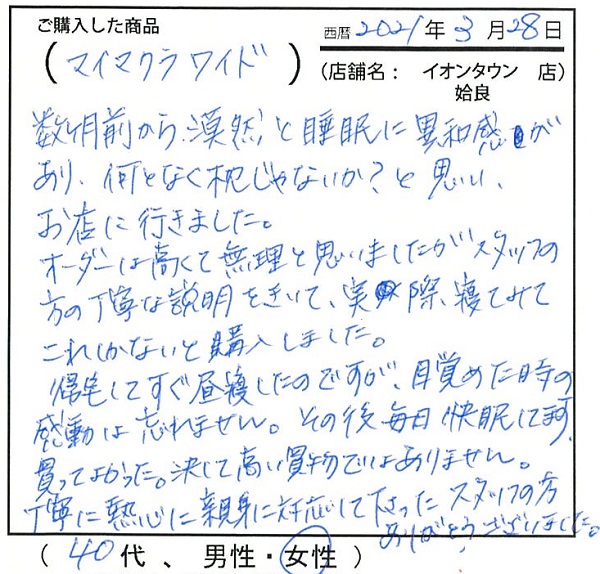 ご購入した商品
西暦 2021年 3月 28日
(マイマクラ ワイド)
(店舗名: イオンタウン 姶良 店)
数ヶ月前から、漠然と睡眠に異和感が
あり、何となく枕じゃないか?と思い、
お店に行きました。
オーダーは高くて無理と思いましたがスタッフの
方の丁寧な説明をきいて、実際、寝てみて
これしかないと購入しました。
帰宅してすぐ昼寝したのですが、目覚めた時の
感動は忘れません。その後毎日快眠してます。
買ってよかった。決して高い買物ではありません。
丁寧に熱心に親身に対応して下さったスタッフの方
ありがとうございました。
(40代、男性・女性)